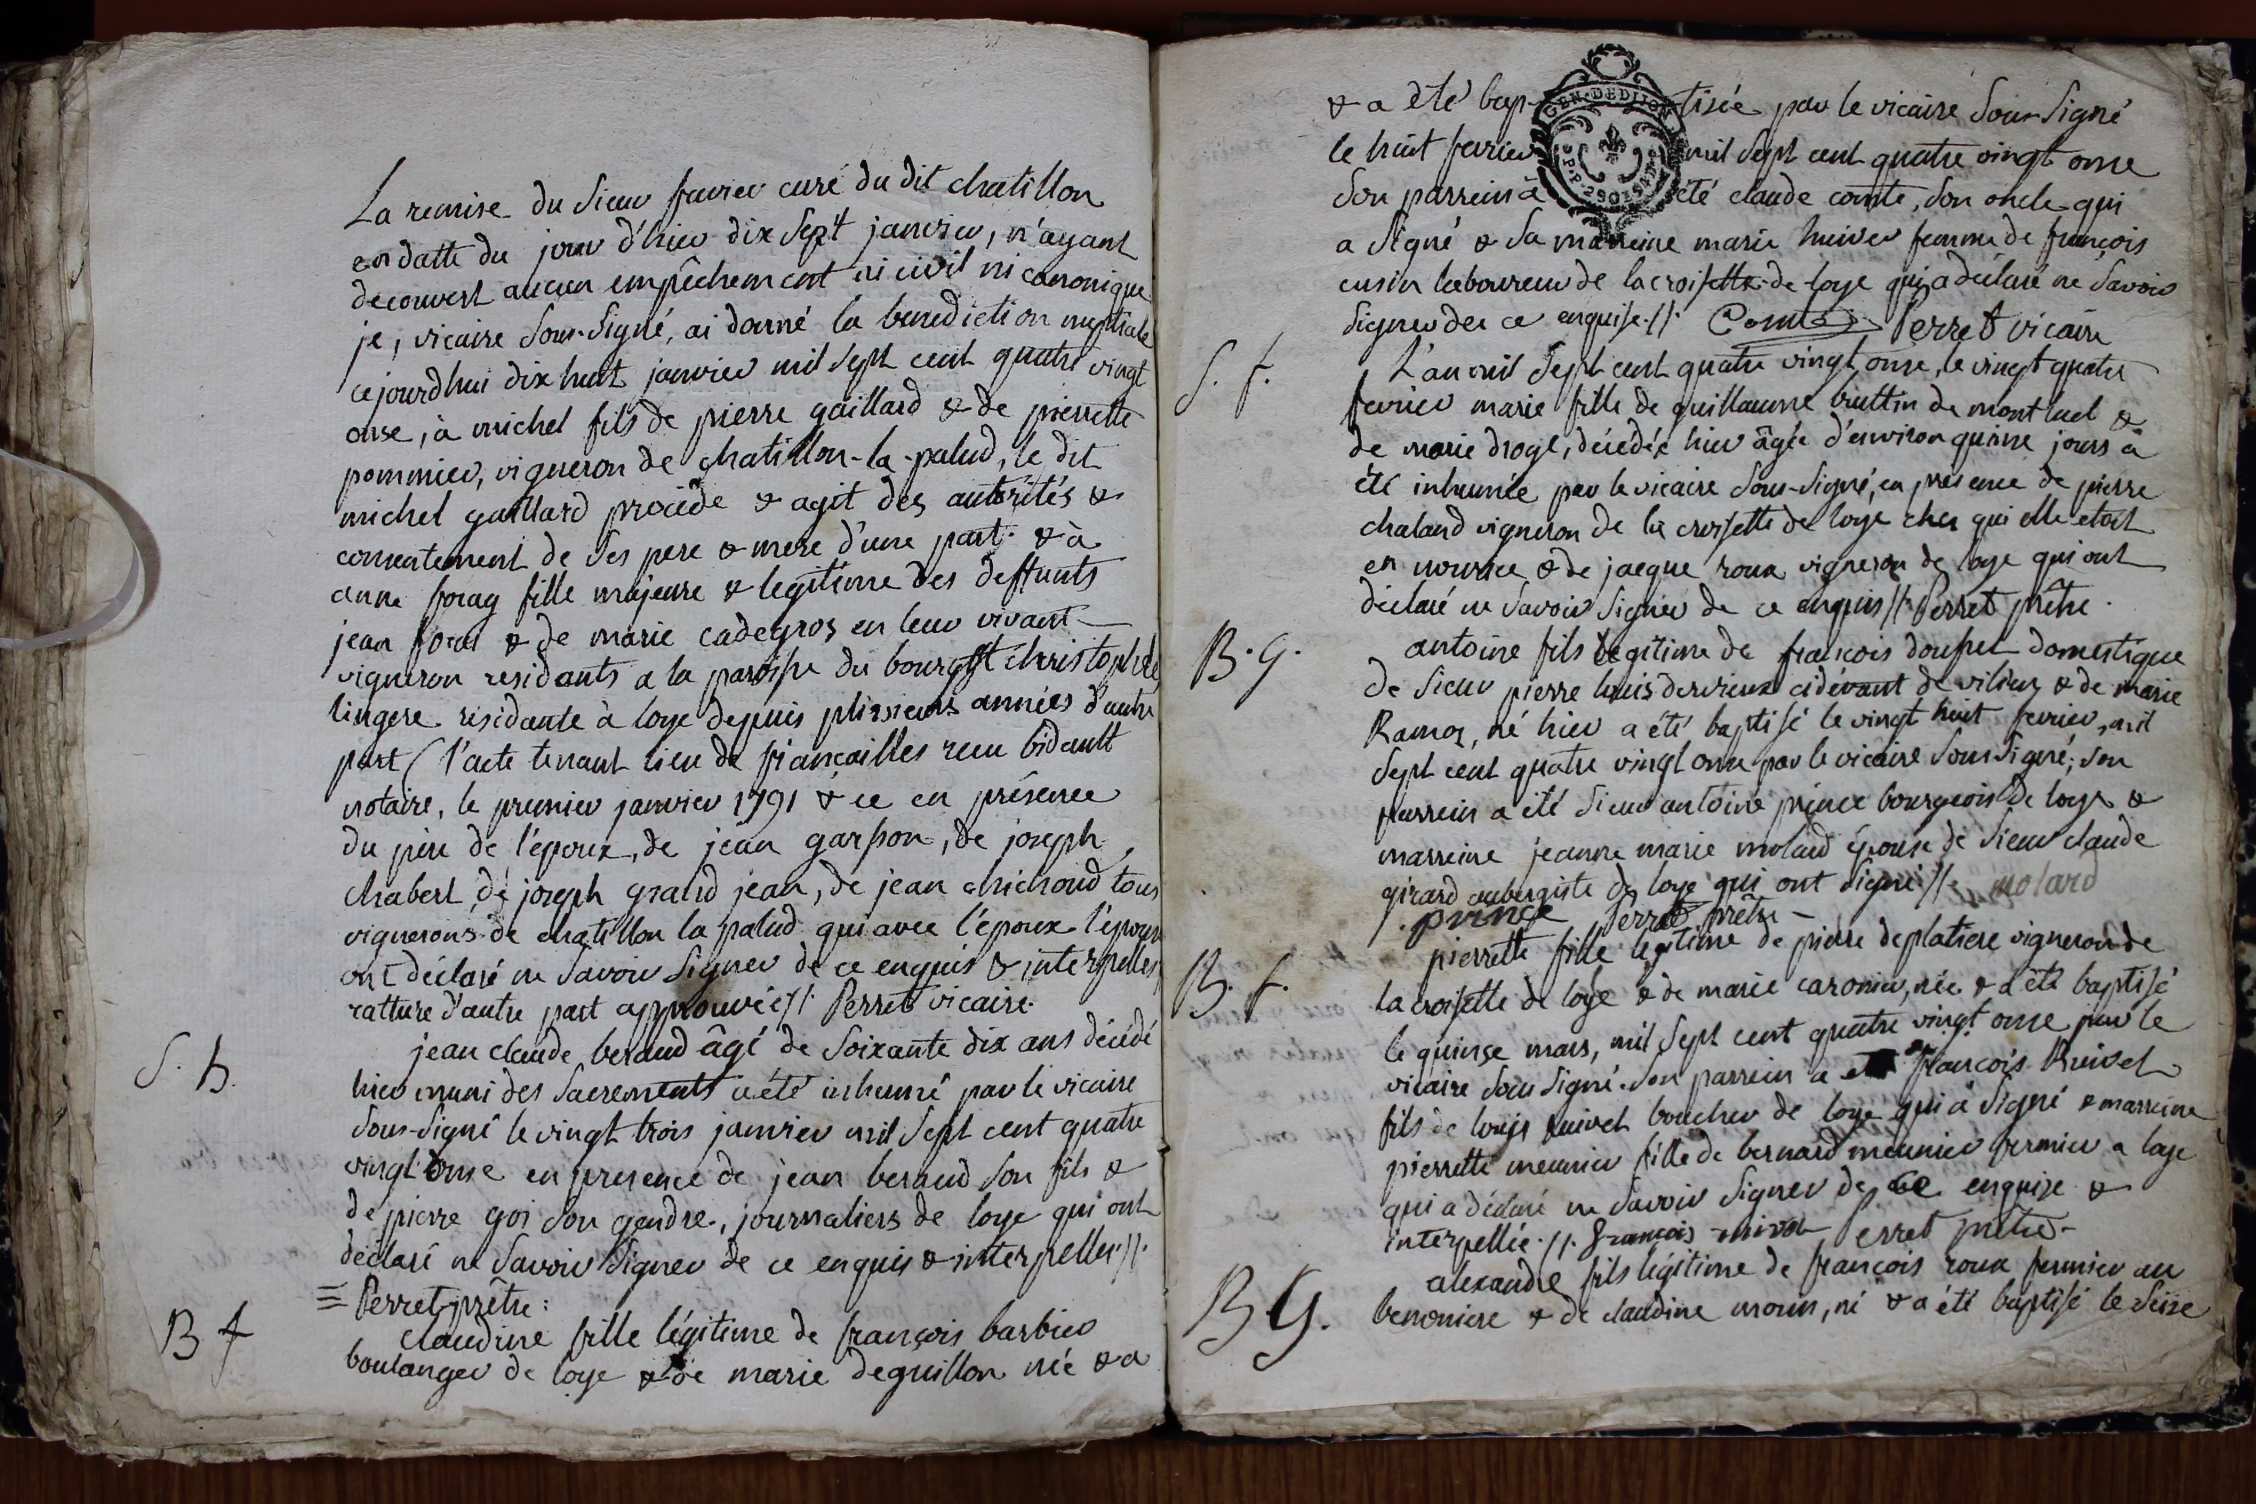 La remise du Sieur favier curé du dit chatillon
en datte du jour d'hier dix Sept janvier, n'ayant
decouvert aucun empêchement ni civil ni canonique
je, vicaire Sous-Signé, ai donné la benediction nuptiale
cejourdhui dix huit janvier mil Sept cent quatre vingt
onse, à michel fils de pierre gaillard & de pierrette
pommier, vigneron de chatillon-la-palud, le dit
michel gaillard procède & agit des autorités &
consentement de Ses pere & mere d'une part. & à
anne foray fille majeure & legitime des deffunts
jean & de marie cadegros en leur vivant
vigneron residants a la paroisse du bourg St christophe
lingere residante à loye depuis plusieurs années d'autre
part (l'acte tenant lieu de fiançailles recu bidault
notaire, le premier janvier 1791 & ce en présence
du père de l'époux, de jean garsson, de joseph
chabert, de joseph grand jean, de jean michoud tous
vignerons de chatillon la palud qui avec l'époux l'épouse
ont déclaré ne Savoir Signer de ce enquis & interpellés
ratture d'autre part approuvée //. Perret vicaire.
S. h. jean claude beraud âgé de Soixante dix ans décédé
hier muni des Sacrements a été inhumé par le vicaire
Sous-Signé le vingt trois janvier mil Sept cent quatre
vingt onse en presence de jean beraud Son fils &
de pierre goi Son gendre, journaliers de loye qui ont
déclaré ne Savoir Signer de ce enquis & interpellés //.
= Perret prêtre:
B f claudine fille légitime de françois barbier
boulanger de loye & de marie deguillon née & a
& a été bap-tisée par le vicaire Sous-Signé
le huit fevrier mil Sept cent quatre vingt onse
Son parrein a été claude comte, Son oncle qui
a Signé & Sa marreine marie huiver femme de françois
cusin laboureur de la croisette de loye qui a déclaré ne Savoir
Signer de ce enquise.//. Comte Perret vicaire
GEN. DE DIJON
S. f. L'an mil Sept cent quatre vingt onse, le vingt quatre
fevrier marie fille de guillaume bruttin de mont luel &
de marie droge, décédée hier âgée d'environ quinse jours a
été inhumée par le vicaire Sous-Signé, en présence de pierre
chaland vigneron de la croisette de loye ches qui elle etoit
en nourice & de jacque roux vigneron de loye qui ont
déclaré ne Savoir Signer de ce enquis //. Perret prêtre.
B. G. antoine fils legitime de françois doufret domestique
de Sieur pierre louis dervieux cidevant de viliers & de marie
Ramos, né hier a été baptisé le vingt huit fevrier, mil
Sept cent quatre vingt onse par le vicaire Sous Signé; Son
parrein a été Sieur antoine prince bourgeois de loye &
marreine jeanne marie molard épouse de Sieur claude
girard aubergiste de loye qui ont Signé //. molard
prince Perret prêtre
B. f. pierrette fille legitime de pierre deplatiere vigneron de
la croisette de loye & de marie caronier, née & a été baptisé
le quinse mars, mil Sept cent quatre vingt onse par le
vicaire Sous Signé. Son parrein a françois Ruivet
fils de louis Ruivet boucher de loye qui a Signé & marreine
pierrette meunier fille de bernard meunier fermier a loye
qui a déclaré ne Savoir Signer de ce enquise &
interpellée.//. François ruivet Perret prêtre
B G. alexandre fils légitime de françois roux fermier au
benoniere & de claudine morin, né & a été baptisé le Seise